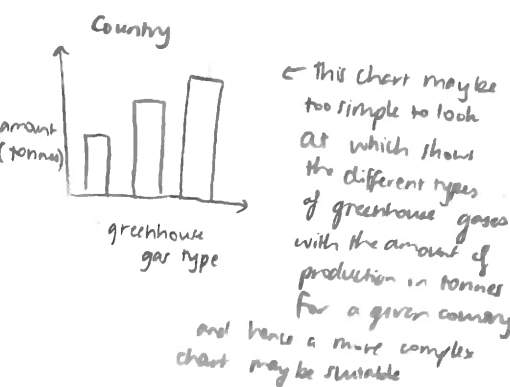 Country
amount
(tonnes)
greenhouse
gas type
← This chart may be
too simple to look
at which shows
the different types
of greenhouse gases
with the amount of
production in tonnes
for a given country
and hence a more complex
chart may be suitable